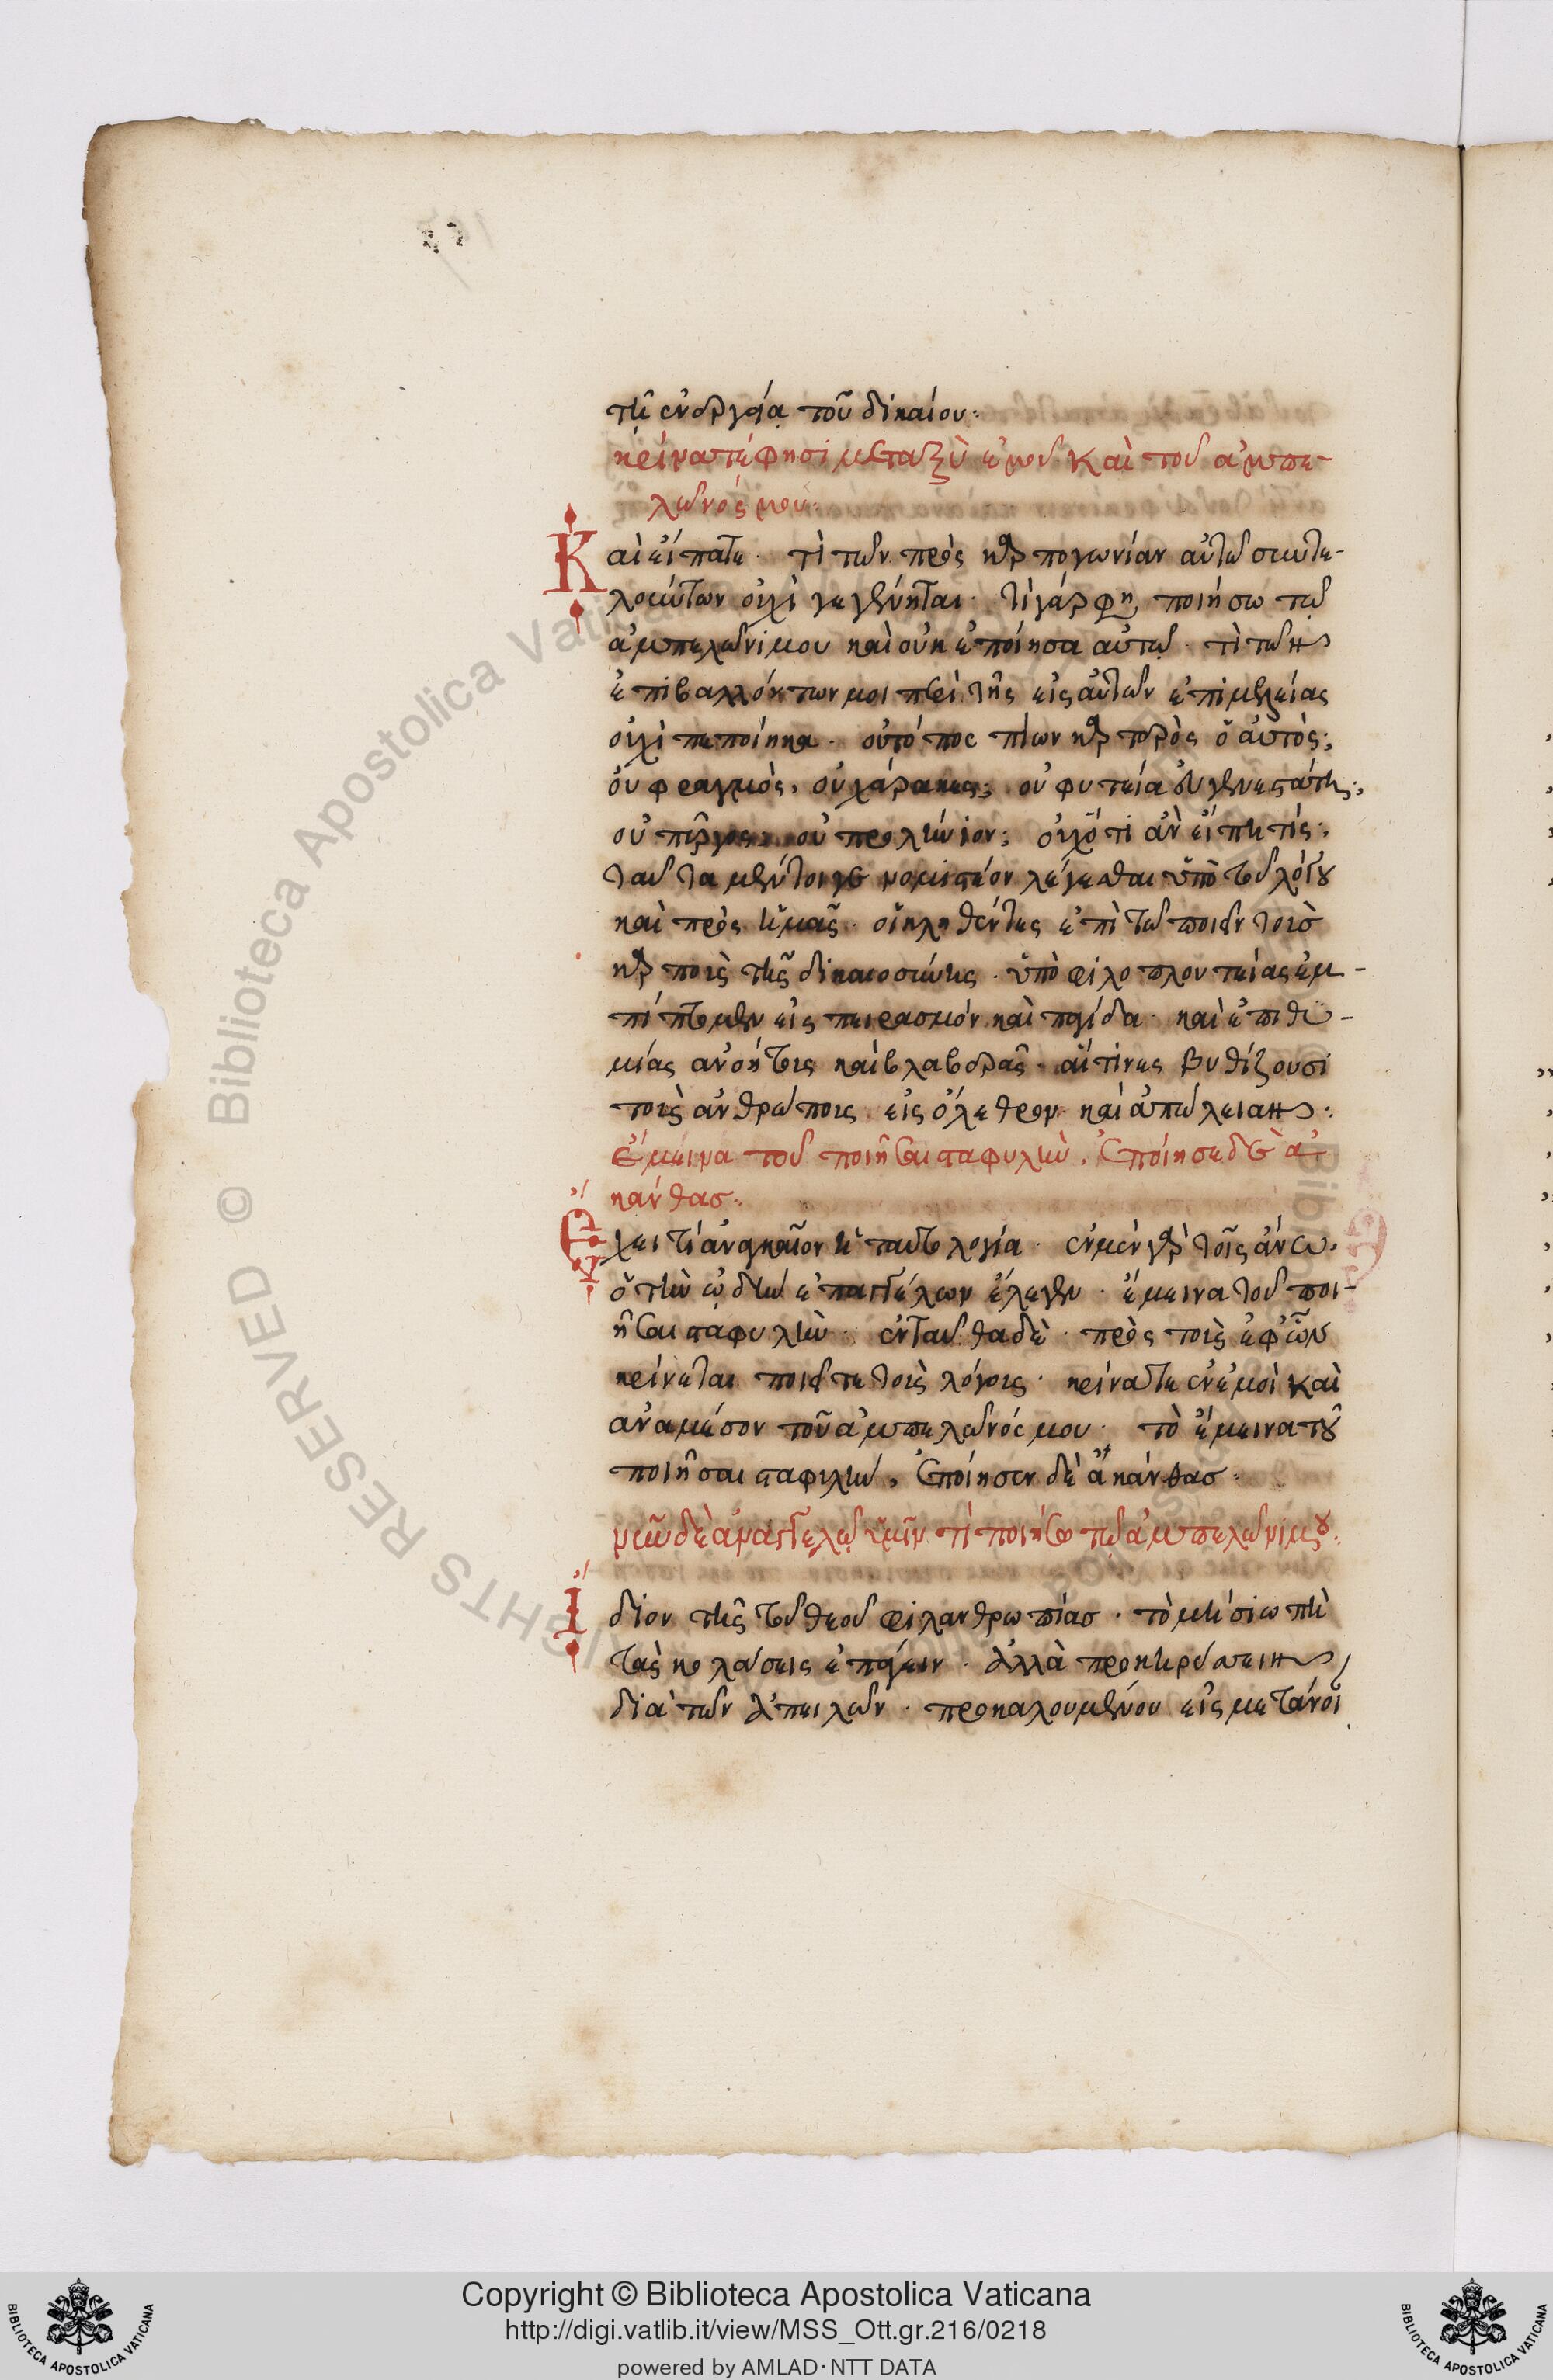 τῆ ἐνεργεία τοῦ δικαίου·
κρίνατέ φησι μεταξὺ ἐμοῦ καὶ τοῦ ἀμπε-
λῶνός μου·
Καὶ εἴπατε· τί τῶν πρὸς καρπογονίαν αὐτῶ συντε-
λούντων οὐχὶ γεγένηται· τί γάρ φη ποιήσω τῶ
ἀμπελῶνι μου καὶ οὐκ ἐποίησα αὐτῶ· τί τῶν
ἐπιβαλλόντων μοι περὶ τῆς εἰς αὐτῶν ἐπιμελείας
οὐχὶ πεποίηκα· οὐ τόπος πίων καρπρὸς ὁ αὐτὸς;
οὐ φραγμὸς, οὐ χάρακες; οὐ φυτεία εὐγενεστάτης;
οὐ πῦργος οὐ προλήνιον; οὐχ ὅτι ἂν εἴπη τίς;
ταῦτα μέντοιγε νομιστέον λέγεσθαι ὑπὸ τοῦ λόγου
καὶ πρὸς ἡμᾶς· οἳ κληθέντες ἐπὶ τῶ ποιεῖν τοὺσ
καρποὺς τῆς δικαιοσύνης· ὑπὸ φιλοπλουτείας ἐμ-
πίπτομεν εἰς πειρασμόν καὶ παγίδα· καὶ ἐπιθυ-
μίας ἀνοήτους καὶ βλαβερὰς· αἵτινες βυθίζουσι
τοὺς ἀνθρώπους εἰς ὄλεθρον καὶ ἀπώλειαν·
ἔμεινα τοῦ ποιῆσαι σταφυλὴν, ἐποίησε δὲ ἀ-
κάνθασ·
Ἔχει τί ἀναγκαῖον ἡ ταυτολογία· ἐν μὲν γὰρ τοῖς ἄνω·
ὁ τὴν ὠδὴν ἐπαγγέλων ἔλεγεν· ἔμεινα τοῦ ποι-
ῆσαι σταφυλὴν· ἐνταῦθα δὲ· πρὸς τοὺς ἐφ' ὧν
κρίνεται ποιεῖται τοὺς λόγους· κρίνατε ἐν ἐμοὶ καὶ
ἀναμέσον τοῦ ἀμπελῶνός μου· τὸ ἔμεινα τοῦ
ποιῆσαι σταφυλὴν, ἐποίησεν δὲ ἀκάνθασ·
νῦν δὲ ἀναγγελῶ ὑμῖν τί ποιήσω τῶ ἀμπελῶνι μου·
Ἴδιον τῆς τοῦ θεοῦ φιλανθρωπίασ· τὸ μὴ σιωπῆ
τὰς κολάσεις ἐπάγειν· ἀλλὰ προκηρύσσειν
διὰ τῶν ἀπειλῶν· προκαλουμένου εἰς μετάνοι
Copyright © Biblioteca Apostolica Vaticana
http://digi.vatlib.it/view/MSS_Ott.gr.216/0218
powered by AMLAD·NTT DATA
BIBLIOTECA APOSTOLICA VATICANA
BIBLIOTECA APOSTOLICA VATICANA